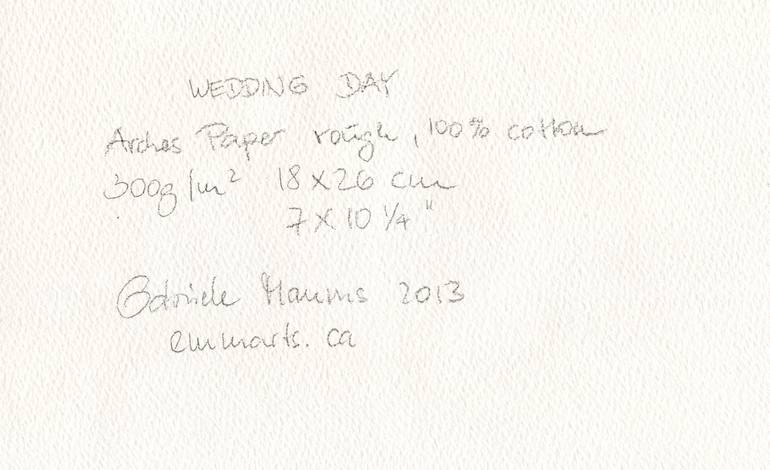 WEDDING DAY
Arches Paper rough, 100% cotton
300g/m² 18 x 26 cm
7 x 10 ¼"
Gabriele Maurus 2013
emmarts.ca